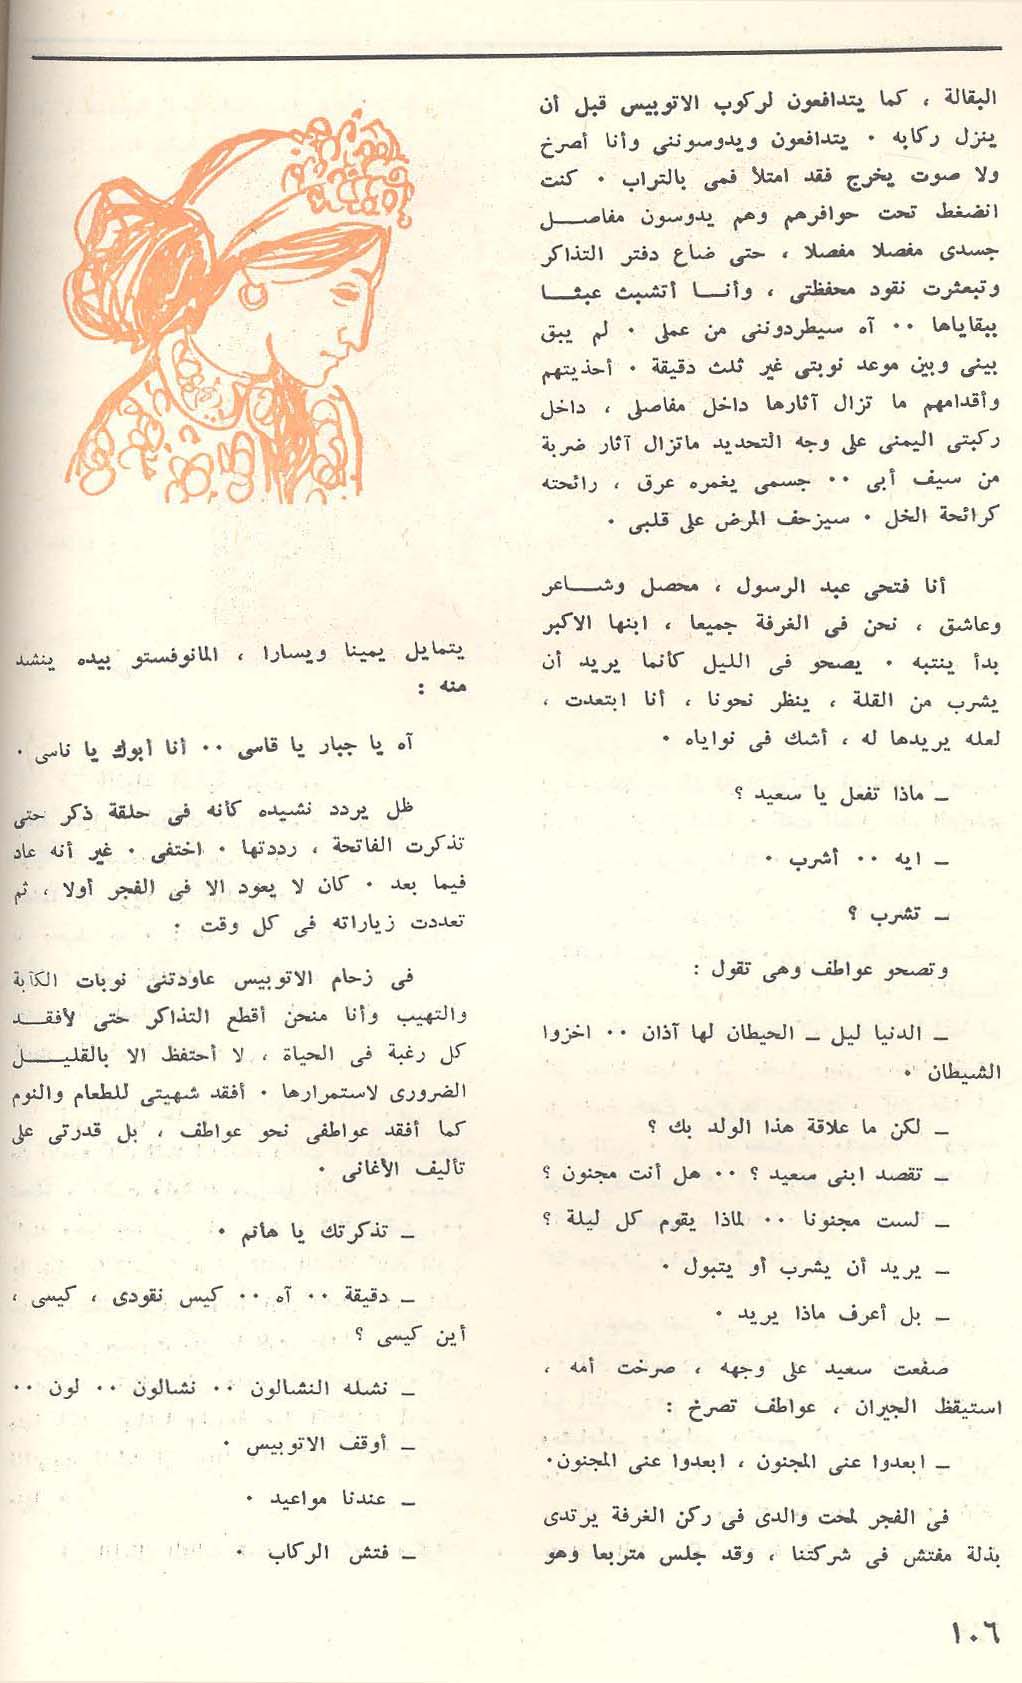 البقالة ، كما يتدافعون لركوب الاتوبيس قبل أن
ينزل ركابه ٠ يتدافعون ويدوسوننى وأنا أصرخ
ولا صوت يخرج فقد امتلأ فمى بالتراب ٠ كنت
انضغط تحت حوافرهم وهم يدوسون مفاصـــل
جسدى مفصلا مفصلا ، حتى ضاع دفتر التذاكر
وتبعثرت نقود محفظتى ، وأنـــا أتشبث عبثـــا
ببقاياها ٠٠ آه سيطردوننى من عملى ٠ لم يبق
بينى وبين موعد نوبتى غير ثلث دقيقة ٠ أحذيتهم
وأقدامهم ما تزال آثارها داخل مفاصلى ، داخل
ركبتى اليمنى على وجه التحديد ماتزال آثار ضربة
من سيف أبى ٠٠ جسمى يغمره عرق ، رائحته
كرائحة الخل ٠ سيزحف المرض على قلبى ٠
أنا فتحى عبد الرسول ، محصل وشـــاعر
وعاشق ، نحن فى الغرفة جميعا ، ابنها الاكبر
بدأ ينتبه ٠ يصحو فى الليل كأنما يريد أن
يشرب من القلة ، ينظر نحونا ، أنا ابتعدت ،
لعله يريدها له ، أشك فى نواياه ٠
ــ ماذا تفعل يا سعيد ؟
ــ ايه ٠٠ أشرب ٠
ــ تشرب ؟
وتصحو عواطف وهى تقول :
ــ الدنيا ليل ــ الحيطان لها آذان ٠٠ اخزوا
الشيطان ٠
ــ لكن ما علاقة هذا الولد بك ؟
ــ تقصد ابنى سعيد ؟ ٠٠ هل أنت مجنون ؟
ــ لست مجنونا ٠٠ لماذا يقوم كل ليلة ؟
ــ يريد أن يشرب أو يتبول ٠
ــ بل أعرف ماذا يريد ٠
صفعت سعيد على وجهه ، صرخت أمه ،
استيقظ الجيران ، عواطف تصرخ :
ــ ابعدوا عنى المجنون ، ابعدوا عنى المجنون٠
فى الفجر لمحت والدى فى ركن الغرفة يرتدى
بذلة مفتش فى شركتنا ، وقد جلس متربعا وهو
يتمايل يمينا ويسارا ، المانوفستو بيده ينشد
منه :
آه يا جبار يا قاسى ٠٠ أنا أبوك يا ناسى ٠
ظل يردد نشيده كأنه فى حلقة ذكر حتى
تذكرت الفاتحة ، رددتها ٠ اختفى ٠ غير أنه عاد
فيما بعد ٠ كان لا يعود الا فى الفجر أولا ، ثم
تعددت زياراته فى كل وقت ٠
فى زحام الاتوبيس عاودتنى نوبات الكآبة
والتهيب وأنا منحن أقطع التذاكر حتى لأفقـــد
كل رغبة فى الحياة ، لا أحتفظ الا بالقليـــل
الضرورى لاستمرارها ٠ أفقد شهيتى للطعام والنوم
كما أفقد عواطفى نحو عواطف ، بل قدرتى على
تأليف الأغانى ٠
ــ تذكرتك يا هأنم ٠
ــ دقيقة ٠٠ آه ٠٠ كيس نقودى ، كيسى ،
أين كيسى ؟
ــ نشله النشالون ٠٠ نشالون ٠٠ لون ٠٠
ــ أوقف الاتوبيس ٠
ــ عندنا مواعيد ٠
ــ فتش الركاب ٠
١٠٦